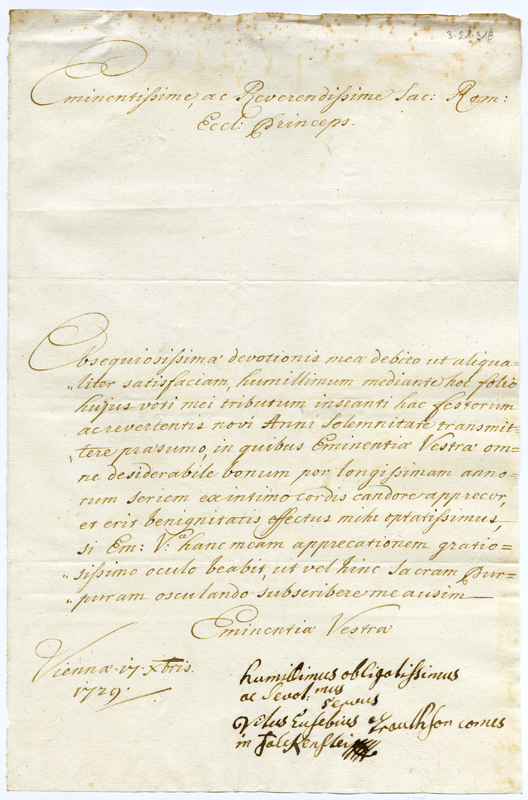 3-21-318
Eminentissime, ac Reverendissime Sac: Rom:
Eccl: Princeps.
Obsequiosissimæ devotionis meæ debito ut aliqua=
liter satisfaciam, humillimum mediante hoc folio
hujus voti mei tributum instanti hac festorum
ac revertentis novi Anni Solemnitate transmit=
tere præsumo, in quibus Eminentiæ Vestræ om=
ne desiderabile bonum per longissimam anno=
rum seriem ex intimo cordis candore apprecor,
et erit benignitatis effectus mihi optatissimus,
si Em: V.ª hanc meam apprecationem gratio=
sissimo oculo beabit, ut vel hinc Sacram Pur=
puram osculando subscribere me ausim
Eminentiæ Vestræ
Viennæ 17 Xbris.
1729.
humillimus obligatissimus
ac devot.mus
servus
Vitus Eusebius Trauthson comes
in Falckenstein